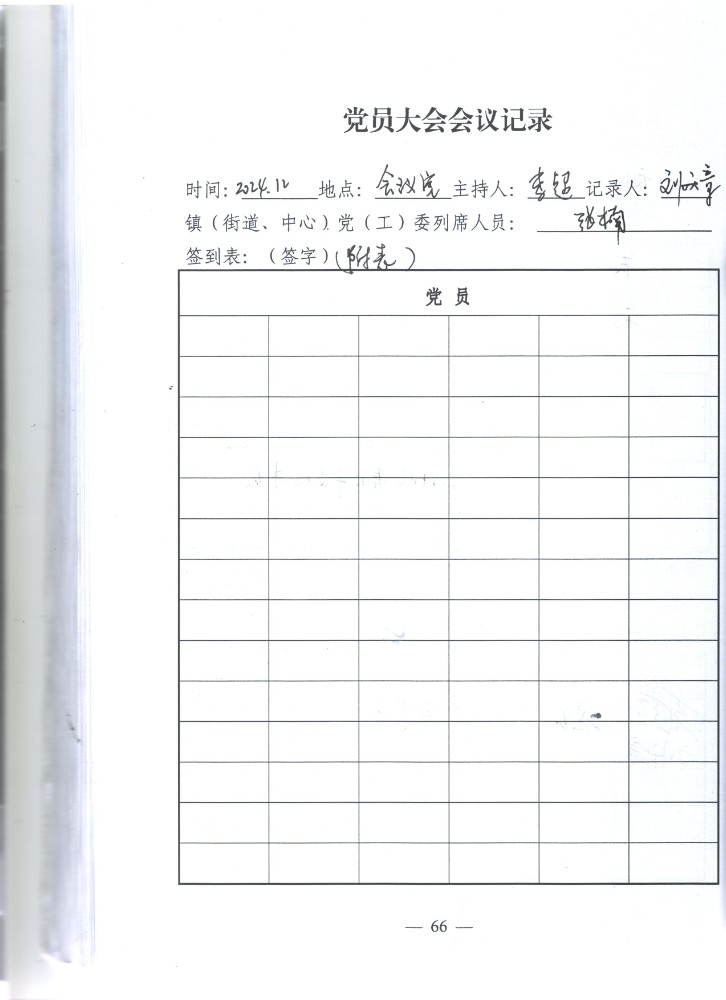 党员大会会议记录
时间：2024.12 地点：会议室 主持人：李超 记录人：刘文章
镇（街道、中心）党（工）委列席人员：张楠
签到表：（签字）（附表）
党员
— 66 —